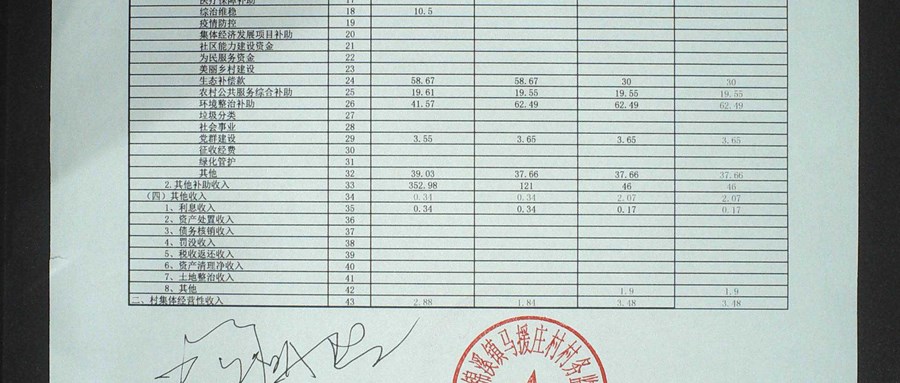 医疗保障补助 17
综治维稳 18 10.5
疫情防控 19
集体经济发展项目补助 20
社区能力建设资金 21
为民服务资金 22
美丽乡村建设 23
生态补偿款 24 58.67 58.67 30 30
农村公共服务综合补助 25 19.61 19.55 19.55 19.55
环境整治补助 26 41.57 62.49 62.49 62.49
垃圾分类 27
社会事业 28
党群建设 29 3.55 3.65 3.65 3.65
征收经费 30
绿化管护 31
其他 32 39.03 37.66 37.66 37.66
2.其他补助收入 33 352.98 121 46 46
（四）其他收入 34 0.34 0.34 2.07 2.07
1、利息收入 35 0.34 0.34 0.17 0.17
2、资产处置收入 36
3、债务核销收入 37
4、罚没收入 38
5、税收返还收入 39
6、资产清理净收入 40
7、土地整治收入 41
8、其他 42 1.9 1.9
二、村集体经营性收入 43 2.88 1.84 3.48 3.48
溪镇马援庄村村务监